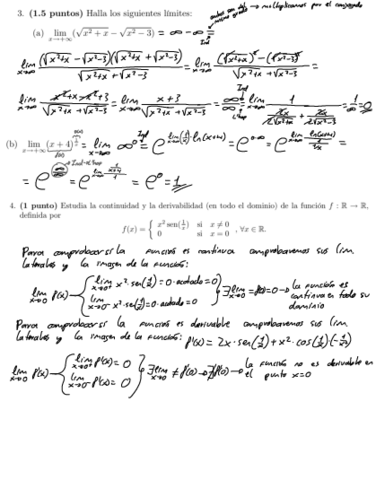 3. (1.5 puntos) Halla los siguientes límites:
ambos son del mismo grado → multiplicamos por el conjugado
(a) lim x→+∞ (√(x²+x) − √(x²−3)) = ∞ − ∞ = Ind
lim x→∞ (√(x²+x) − √(x²−3))(√(x²+x) + √(x²−3)) / (√(x²+x) + √(x²−3)) = lim x→∞ ((√(x²+x))² − (√(x²−3))²) / (√(x²+x) + √(x²−3)) =
lim x→∞ (x²+x−x²+3) / (√(x²+x) + √(x²−3)) = lim x→∞ (x+3) / (√(x²+x) + √(x²−3)) = ∞/∞ = lim x→∞ 1 /
(b) lim x→+∞ (x+4)^(1/x) = lim x→∞ ∞⁰ Ind = e^(lim x→∞ (1/x)·ln(x+4)) = e^(0·∞) = e^(lim x→∞ ln(x+4)/
= e^(∞/∞) = e^(lim x→∞ (1/(x+4))/1) = e⁰ = 1
4. (1 punto) Estudia la continuidad y la derivabilidad (en todo el dominio) de la función f : ℝ → ℝ,
definida por
f(x) = { x² sen(1/x) si x ≠ 0
0 si x = 0 , ∀x ∈ ℝ.
Para comprobar si la función es continua comprobaremos sus lim
laterales y la imagen de la función:
lim x→0 f(x) → { lim x→0⁺ x²·sen(1/x) = 0·acotado = 0
lim x→0⁻ x²·sen(1/x) = 0·acotado = 0 } ∃ lim x→0 = f(0) = 0 → la función es continua en todo su dominio
Para comprobar si la función es derivable comprobaremos sus lim
laterales y la imagen de la función: f'(x) = 2x·sen(1/x) + x²·cos(1/x)(−1/x²)
lim x→0 f'(x) → { lim x→0⁺ f'(x) = 0
lim x→0⁻ f'(x) = 0 } ∃ lim x→0 ≠ f'(0) → ∄f'(0) → la función no es derivable en el punto x=0